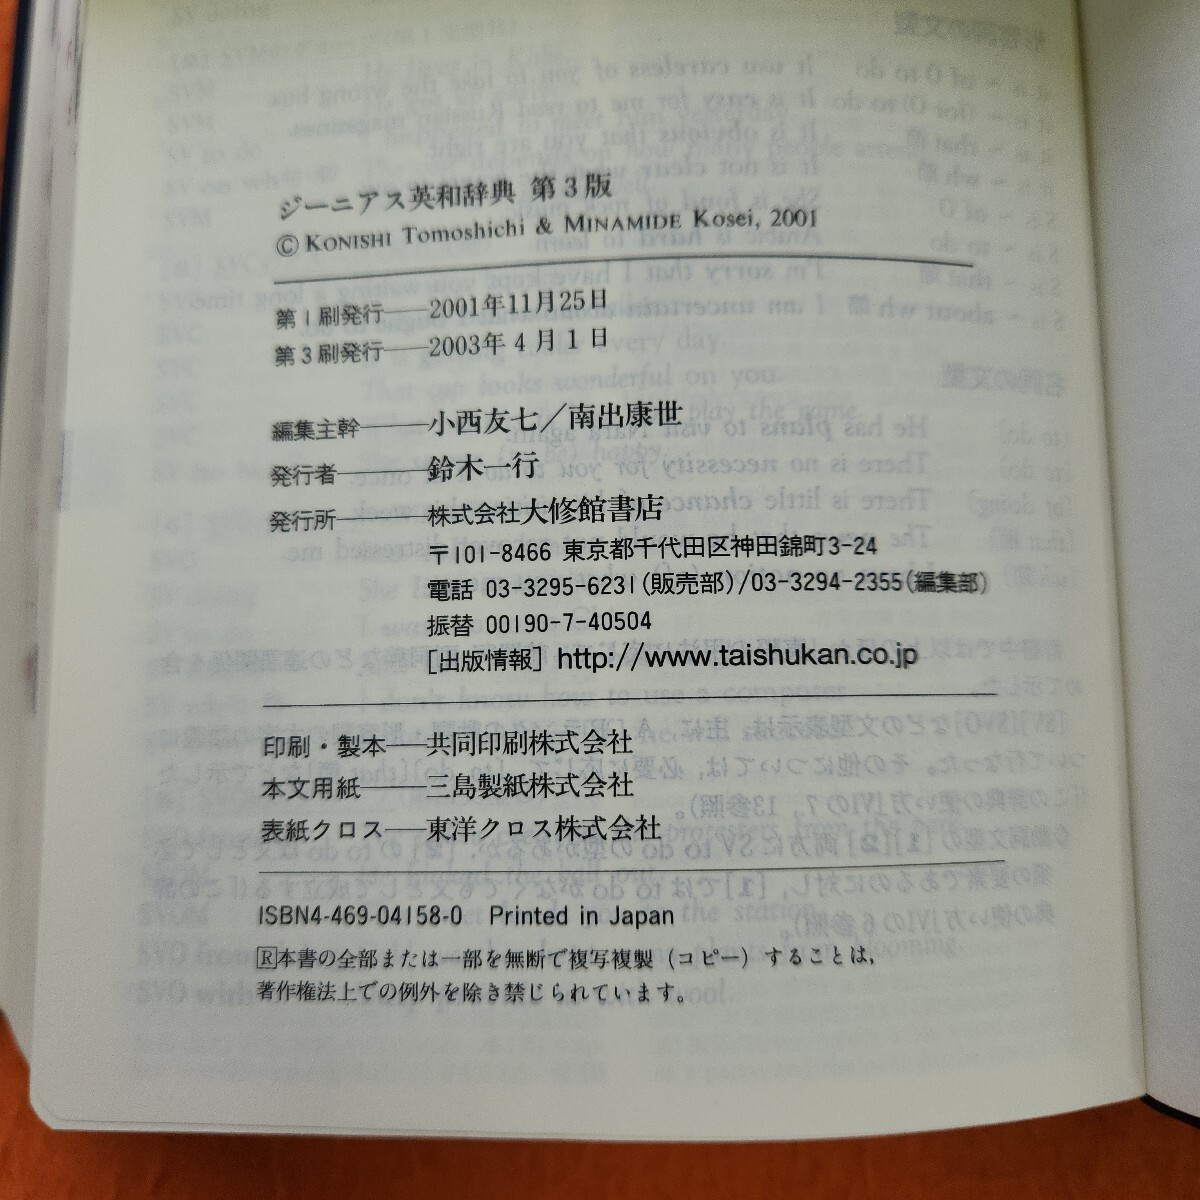 ジーニアス英和辞典 第3版
© KONISHI Tomoshichi & MINAMIDE Kosei, 2001
第1刷発行──2001年11月25日
第3刷発行──2003年4月1日
編集主幹───小西友七／南出康世
発行者────鈴木一行
発行所────株式会社大修館書店
〒101-8466 東京都千代田区神田錦町3-24
電話 03-3295-6231(販売部)/03-3294-2355(編集部)
振替 00190-7-40504
[出版情報] http://www.taishukan.co.jp
印刷・製本──共同印刷株式会社
本文用紙───三島製紙株式会社
表紙クロス──東洋クロス株式会社
ISBN4-469-04158-0 Printed in Japan
Ⓡ本書の全部または一部を無断で複写複製（コピー）することは,
著作権法上での例外を除き禁じられています。